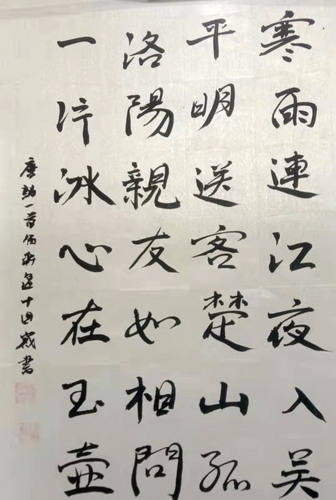 寒雨連江夜入吴
平明送客楚山孤
洛陽親友如相問
一片冰心在玉壺
一首 書